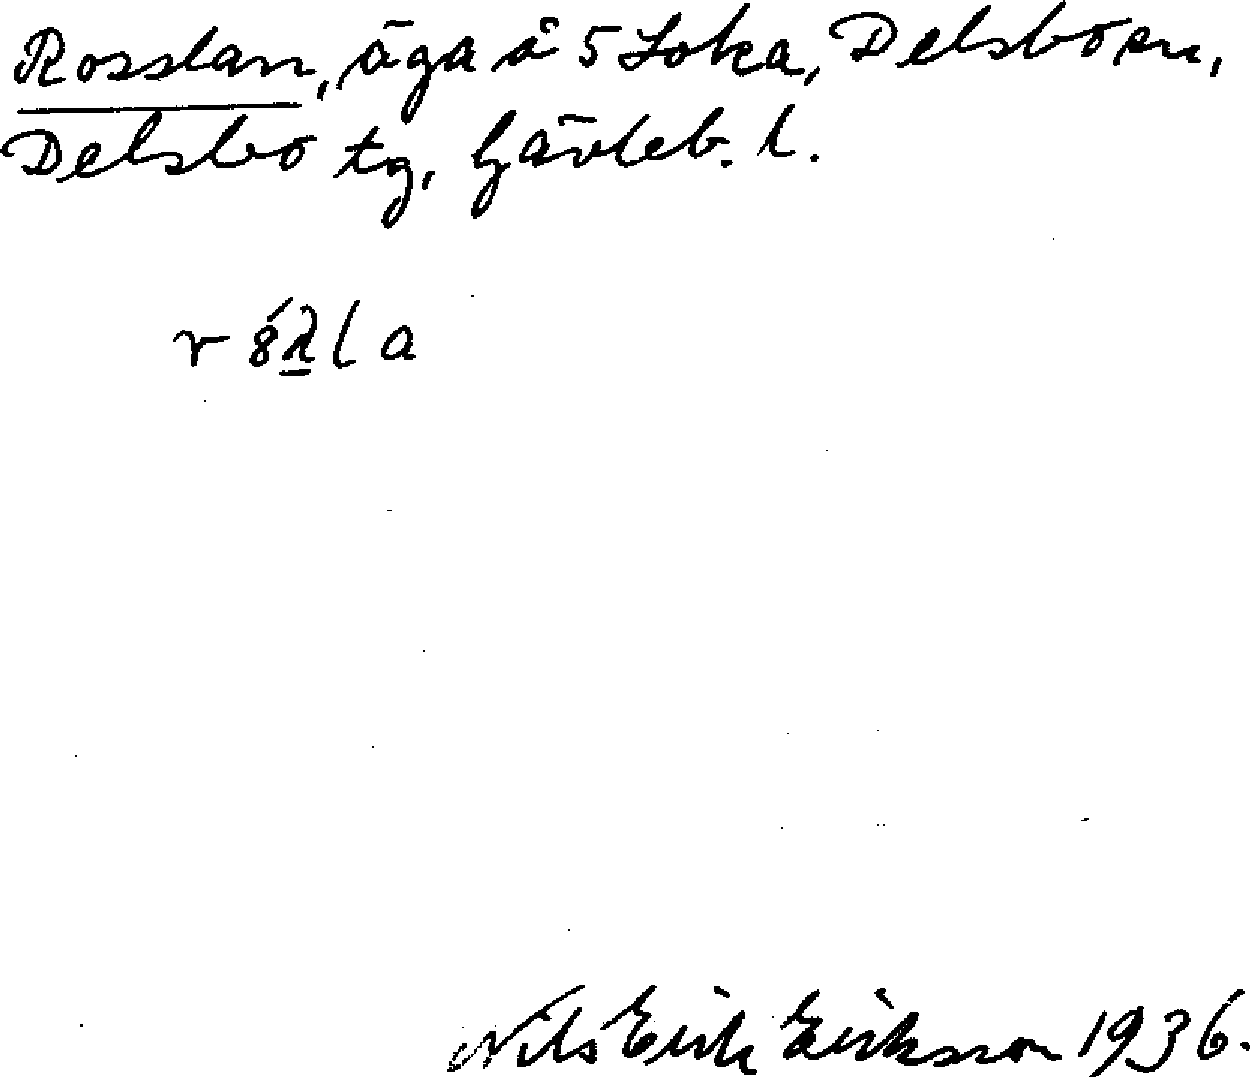 Rosslan, äga å 5 Loka, Delsbo sn,
Delsbo tg, Gävleb. l.
Nils Erik Eriksson 1936.